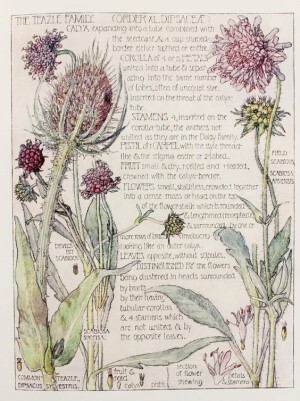 THE TEAZLE FAMILY. ORDER XL. DIPSACEAE
CALYX, expanding into a tube combined with
the seedcase & a cup-shaped
border either toothed or entire.
COROLLA of 4 or 5 PETALS
united into a tube & separ-
ating into the same number
of lobes, often of unequal size.
Inserted on the throat of the calyx-
tube.
STAMENS, 4, inserted on the
corolla-tube, the anthers not
united as they are in the Daisy family.
PISTIL of 1 CARPEL with the style thread-
like & the stigma entire or 2-lobed.
FRUIT small & dry, 1-celled and 1-seeded,
crowned with the calyx-border.
FLOWERS small, stalkless, crowded together
into a dense mass or head on the top
of the flowerstalk which is rounded
& lengthened (receptacle)
& surrounded by one or
more rows of bracts (involucre)
looking like an outer calyx.
LEAVES opposite, without stipules.
DISTINGUISHED by the flowers
being clustered in heads surrounded
by bracts
by their having
tubular corollas
& 4 stamens which
are not united, & by
the opposite leaves.
FIELD
SCABIOUS
SCABIOSA
ARVENSIS
DEVIL'S
BIT
SCABIOUS
SCABIOSA
COMMON
TEAZLE,
DIPSACUS SYLVESTRIS.
fruit &
seed
calyx
pistil
section
of flower
shewing
petals
& stamens